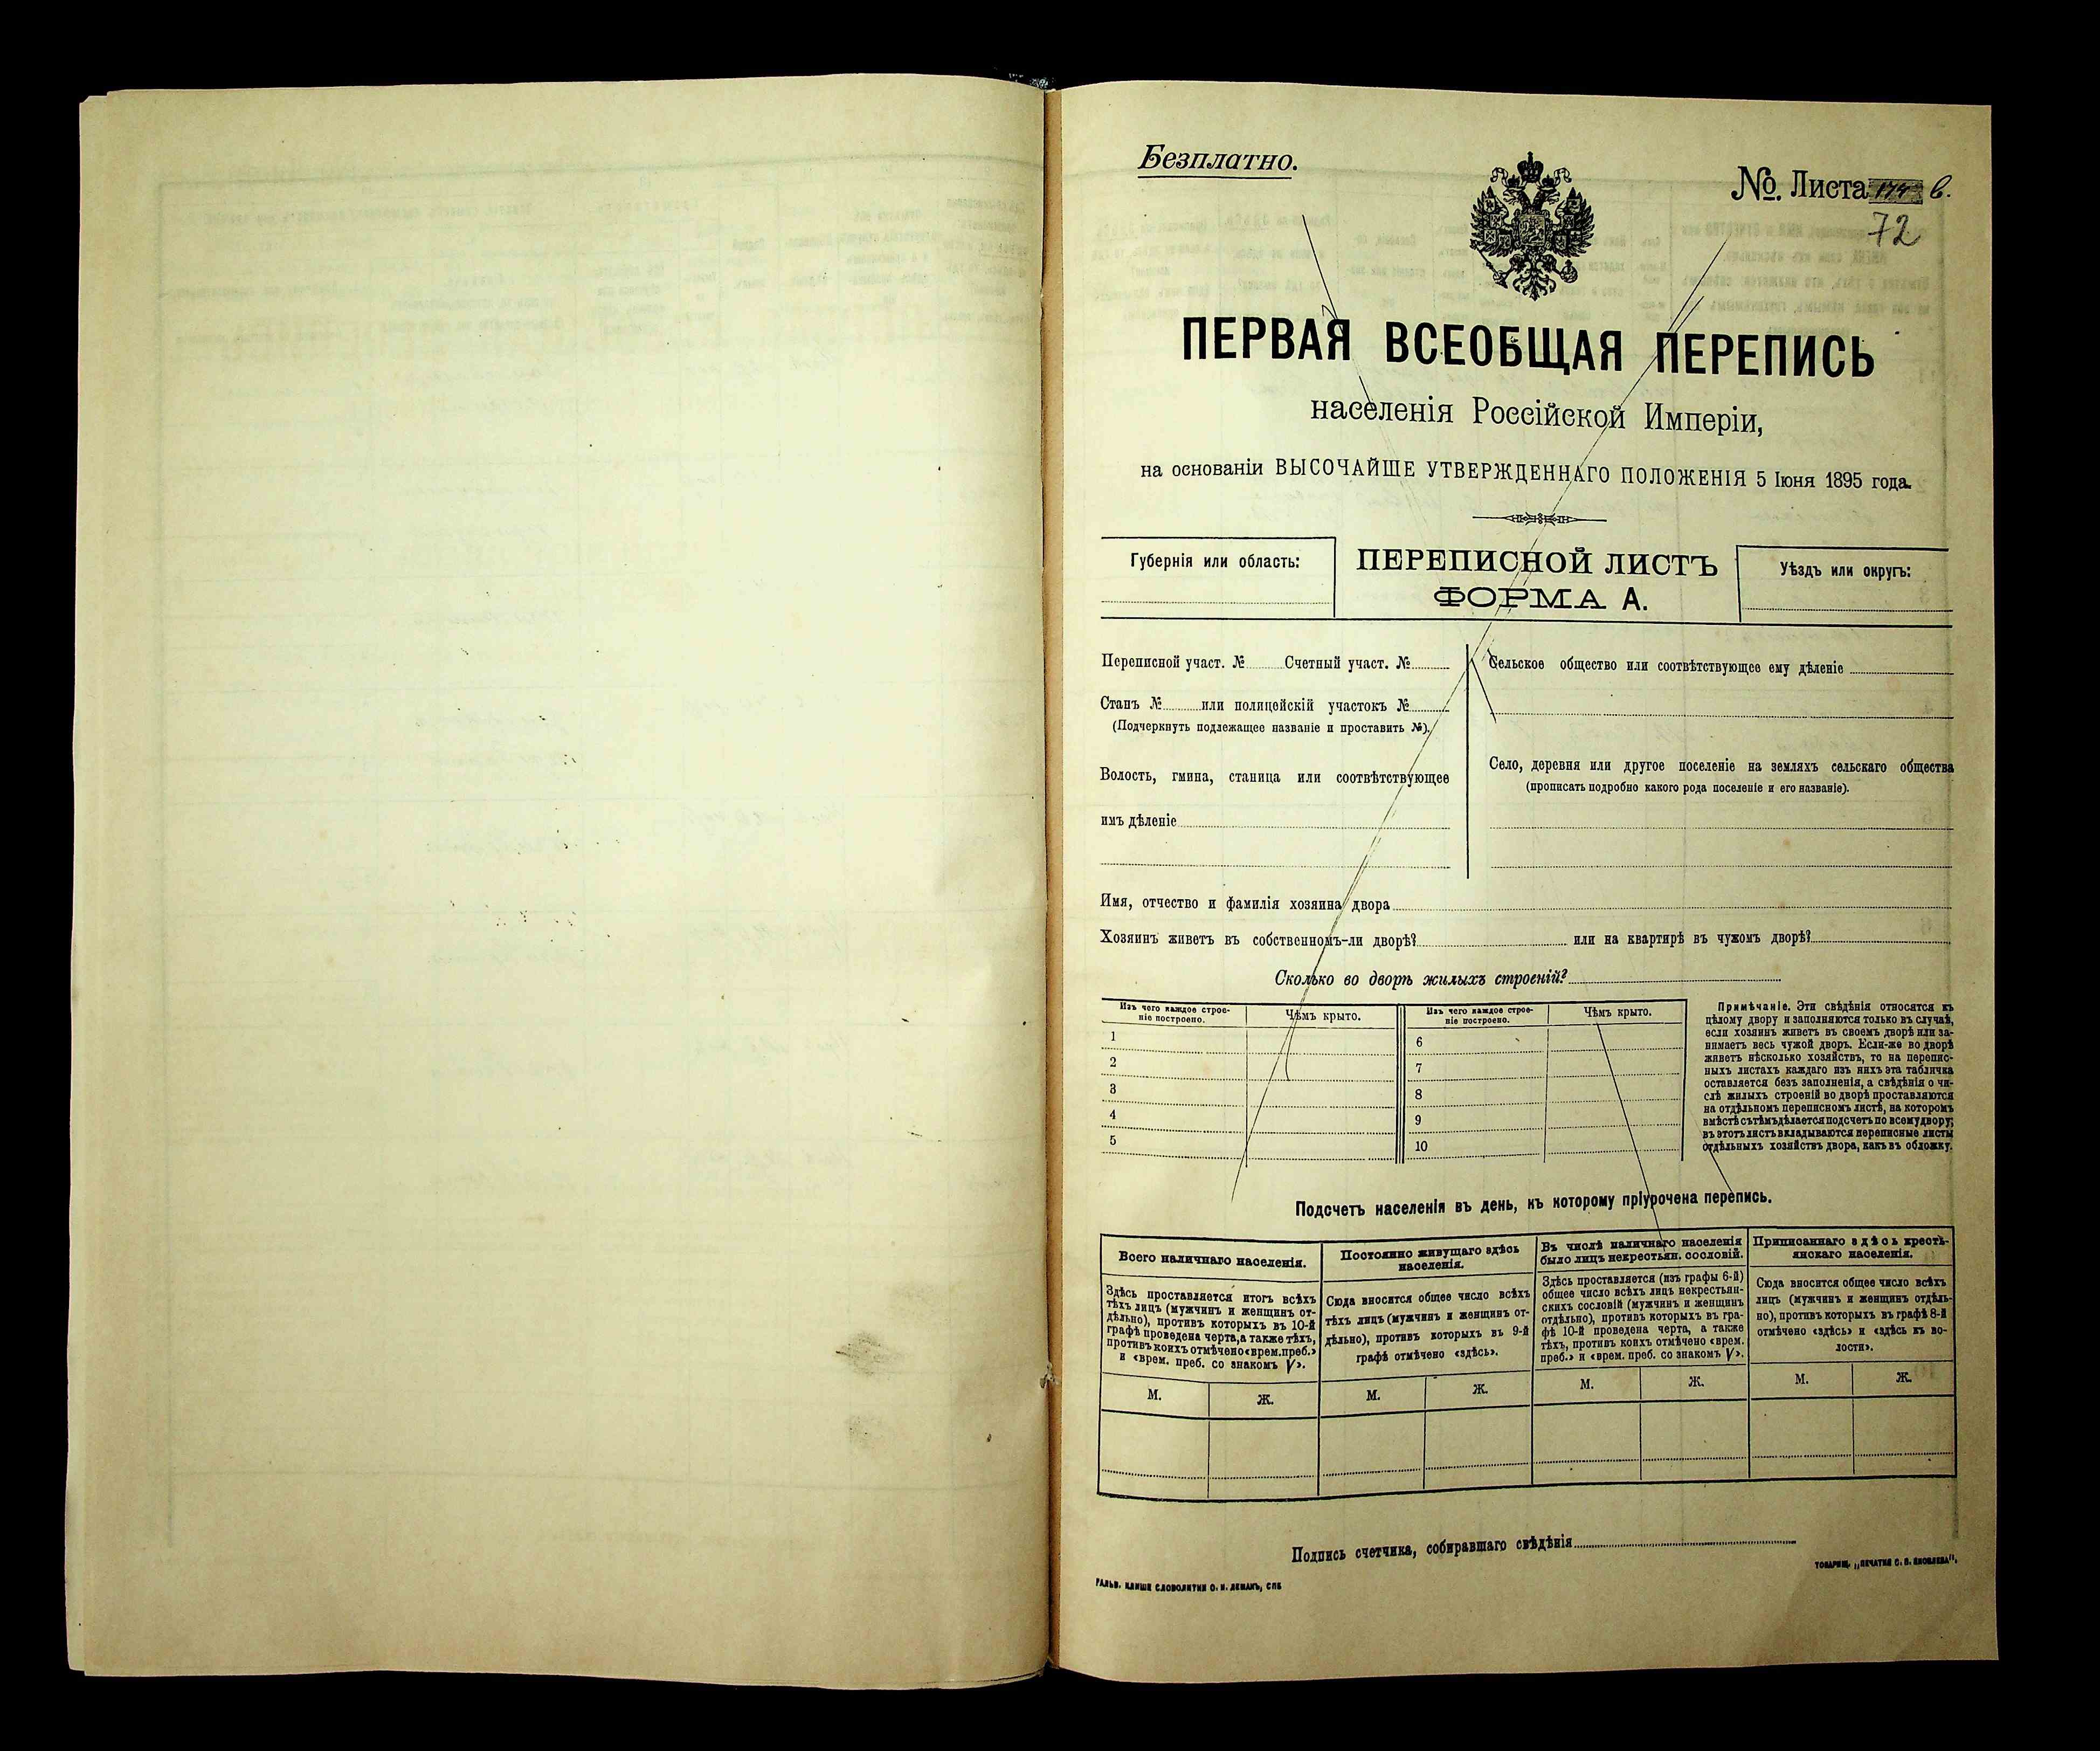 Безплатно.
№. Листа 174 в.
72
ПЕРВАЯ ВСЕОБЩАЯ ПЕРЕПИСЬ
населенія Россійской Имперіи,
на основаніи ВЫСОЧАЙШЕ УТВЕРЖДЕННАГО ПОЛОЖЕНІЯ 5 Іюня 1895 года.
Губернія или область:
ПЕРЕПИСНОЙ ЛИСТЪ
ФОРМА А.
Уѣздъ или округъ:
Переписной участ. № Счетный участ. №
Станъ № или полицейскій участокъ №
(Подчеркнуть подлежащее названіе и проставить №).
Волость, гмина, станица или соотвѣтствующее
имъ дѣленіе
Сельское общество или соотвѣтствующее ему дѣленіе
Село, деревня или другое поселеніе на земляхъ сельскаго общества
(прописать подробно какого рода поселеніе и его названіе).
Имя, отчество и фамилія хозяина двора
Хозяинъ живетъ въ собственномъ-ли дворѣ? или на квартирѣ въ чужомъ дворѣ?
Сколько во дворѣ жилыхъ строеній?
Изъ чего каждое строе-
ніе построено.
Чѣмъ крыто.
Изъ чего каждое строе-
ніе построено.
Чѣмъ крыто.
1
2
3
4
5
6
7
8
9
10
Примѣчаніе. Эти свѣдѣнія относятся къ
цѣлому двору и заполняются только въ случаѣ,
если хозяинъ живетъ въ своемъ дворѣ или за-
нимаетъ весь чужой дворъ. Если-же во дворѣ
живетъ нѣсколько хозяйствъ, то на перепис-
ныхъ листахъ каждаго изъ нихъ эта табличка
оставляется безъ заполненія, а свѣдѣнія о чи-
слѣ жилыхъ строеній во дворѣ проставляются
на отдѣльномъ переписномъ листѣ, на которомъ
вмѣстѣ съ тѣмъ дѣлается подсчетъ по всему двору;
въ этотъ листъ вкладываются переписные листы
отдѣльныхъ хозяйствъ двора, какъ въ обложку.
Подсчетъ населенія въ день, къ которому пріурочена перепись.
Всего наличнаго населенія.
Здѣсь проставляется итогъ всѣхъ
тѣхъ лицъ (мужчинъ и женщинъ от-
дѣльно), противъ которыхъ въ 10-й
графѣ проведена черта, а также тѣхъ,
противъ коихъ отмѣчено «врем. преб.»
и «врем. преб. со знакомъ V».
М. Ж.
Постоянно живущаго здѣсь
населенія.
Сюда вносится общее число всѣхъ
тѣхъ лицъ (мужчинъ и женщинъ от-
дѣльно), противъ которыхъ въ 9-й
графѣ отмѣчено «здѣсь».
М. Ж.
Въ числѣ наличнаго населенія
было лицъ некрестьян. сословій.
Здѣсь проставляется (изъ графы 6-й)
общее число всѣхъ лицъ некрестьян-
скихъ сословій (мужчинъ и женщинъ
отдѣльно), противъ которыхъ въ гра-
фѣ 10-й проведена черта, а также
тѣхъ, противъ коихъ отмѣчено «врем.
преб.» и «врем. преб. со знакомъ V».
М. Ж.
Приписаннаго здѣсь кресть-
янскаго населенія.
Сюда вносится общее число всѣхъ
лицъ (мужчинъ и женщинъ отдѣль-
но), противъ которыхъ въ графѣ 8-й
отмѣчено «здѣсь» и «здѣсь къ во-
лости».
М. Ж.
Подпись счетчика, собиравшаго свѣдѣнія
ГАЛЬВ. КЛИШЕ СЛОВОЛИТНИ О. И. ЛЕМАНЪ, СПБ
ТОВАРИЩ. „ПЕЧАТНЯ С. П. ЯКОВЛЕВА".